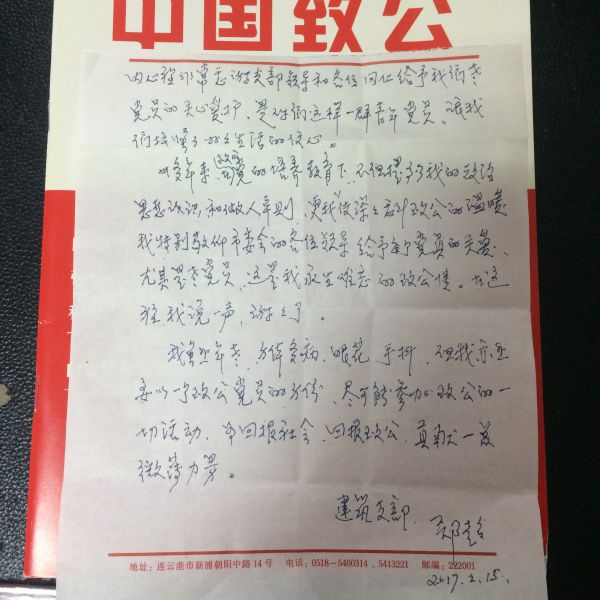 中国致公
内心强烈常志谢支部领导和各位同仁给予我们老
党员的关心爱护、是你们这样一群青年党员、跟我
们培增了的生活的信心。
廿多年来 在党的培养教育下、不但提高了我的政治
致公
思想认识和做人准则、更我使深深感到致公的温暖
我特别敬仰市委会的各位领导给予每个党员的关爱、
尤其是老党员、这是我永生难忘的致公情。在这
里我说一声、谢谢了。
我虽然年老、身体多病、眼花、手抖、但我永远
要以一个致公党员的身份、尽可能参加致公的一
切活动、为回报社会、回报致公、贡献一点
微薄力量。
建筑支部
2017.2.15.
地址：连云港市新浦朝阳中路14号 电话：0518-5400314、5413221 邮编：222001